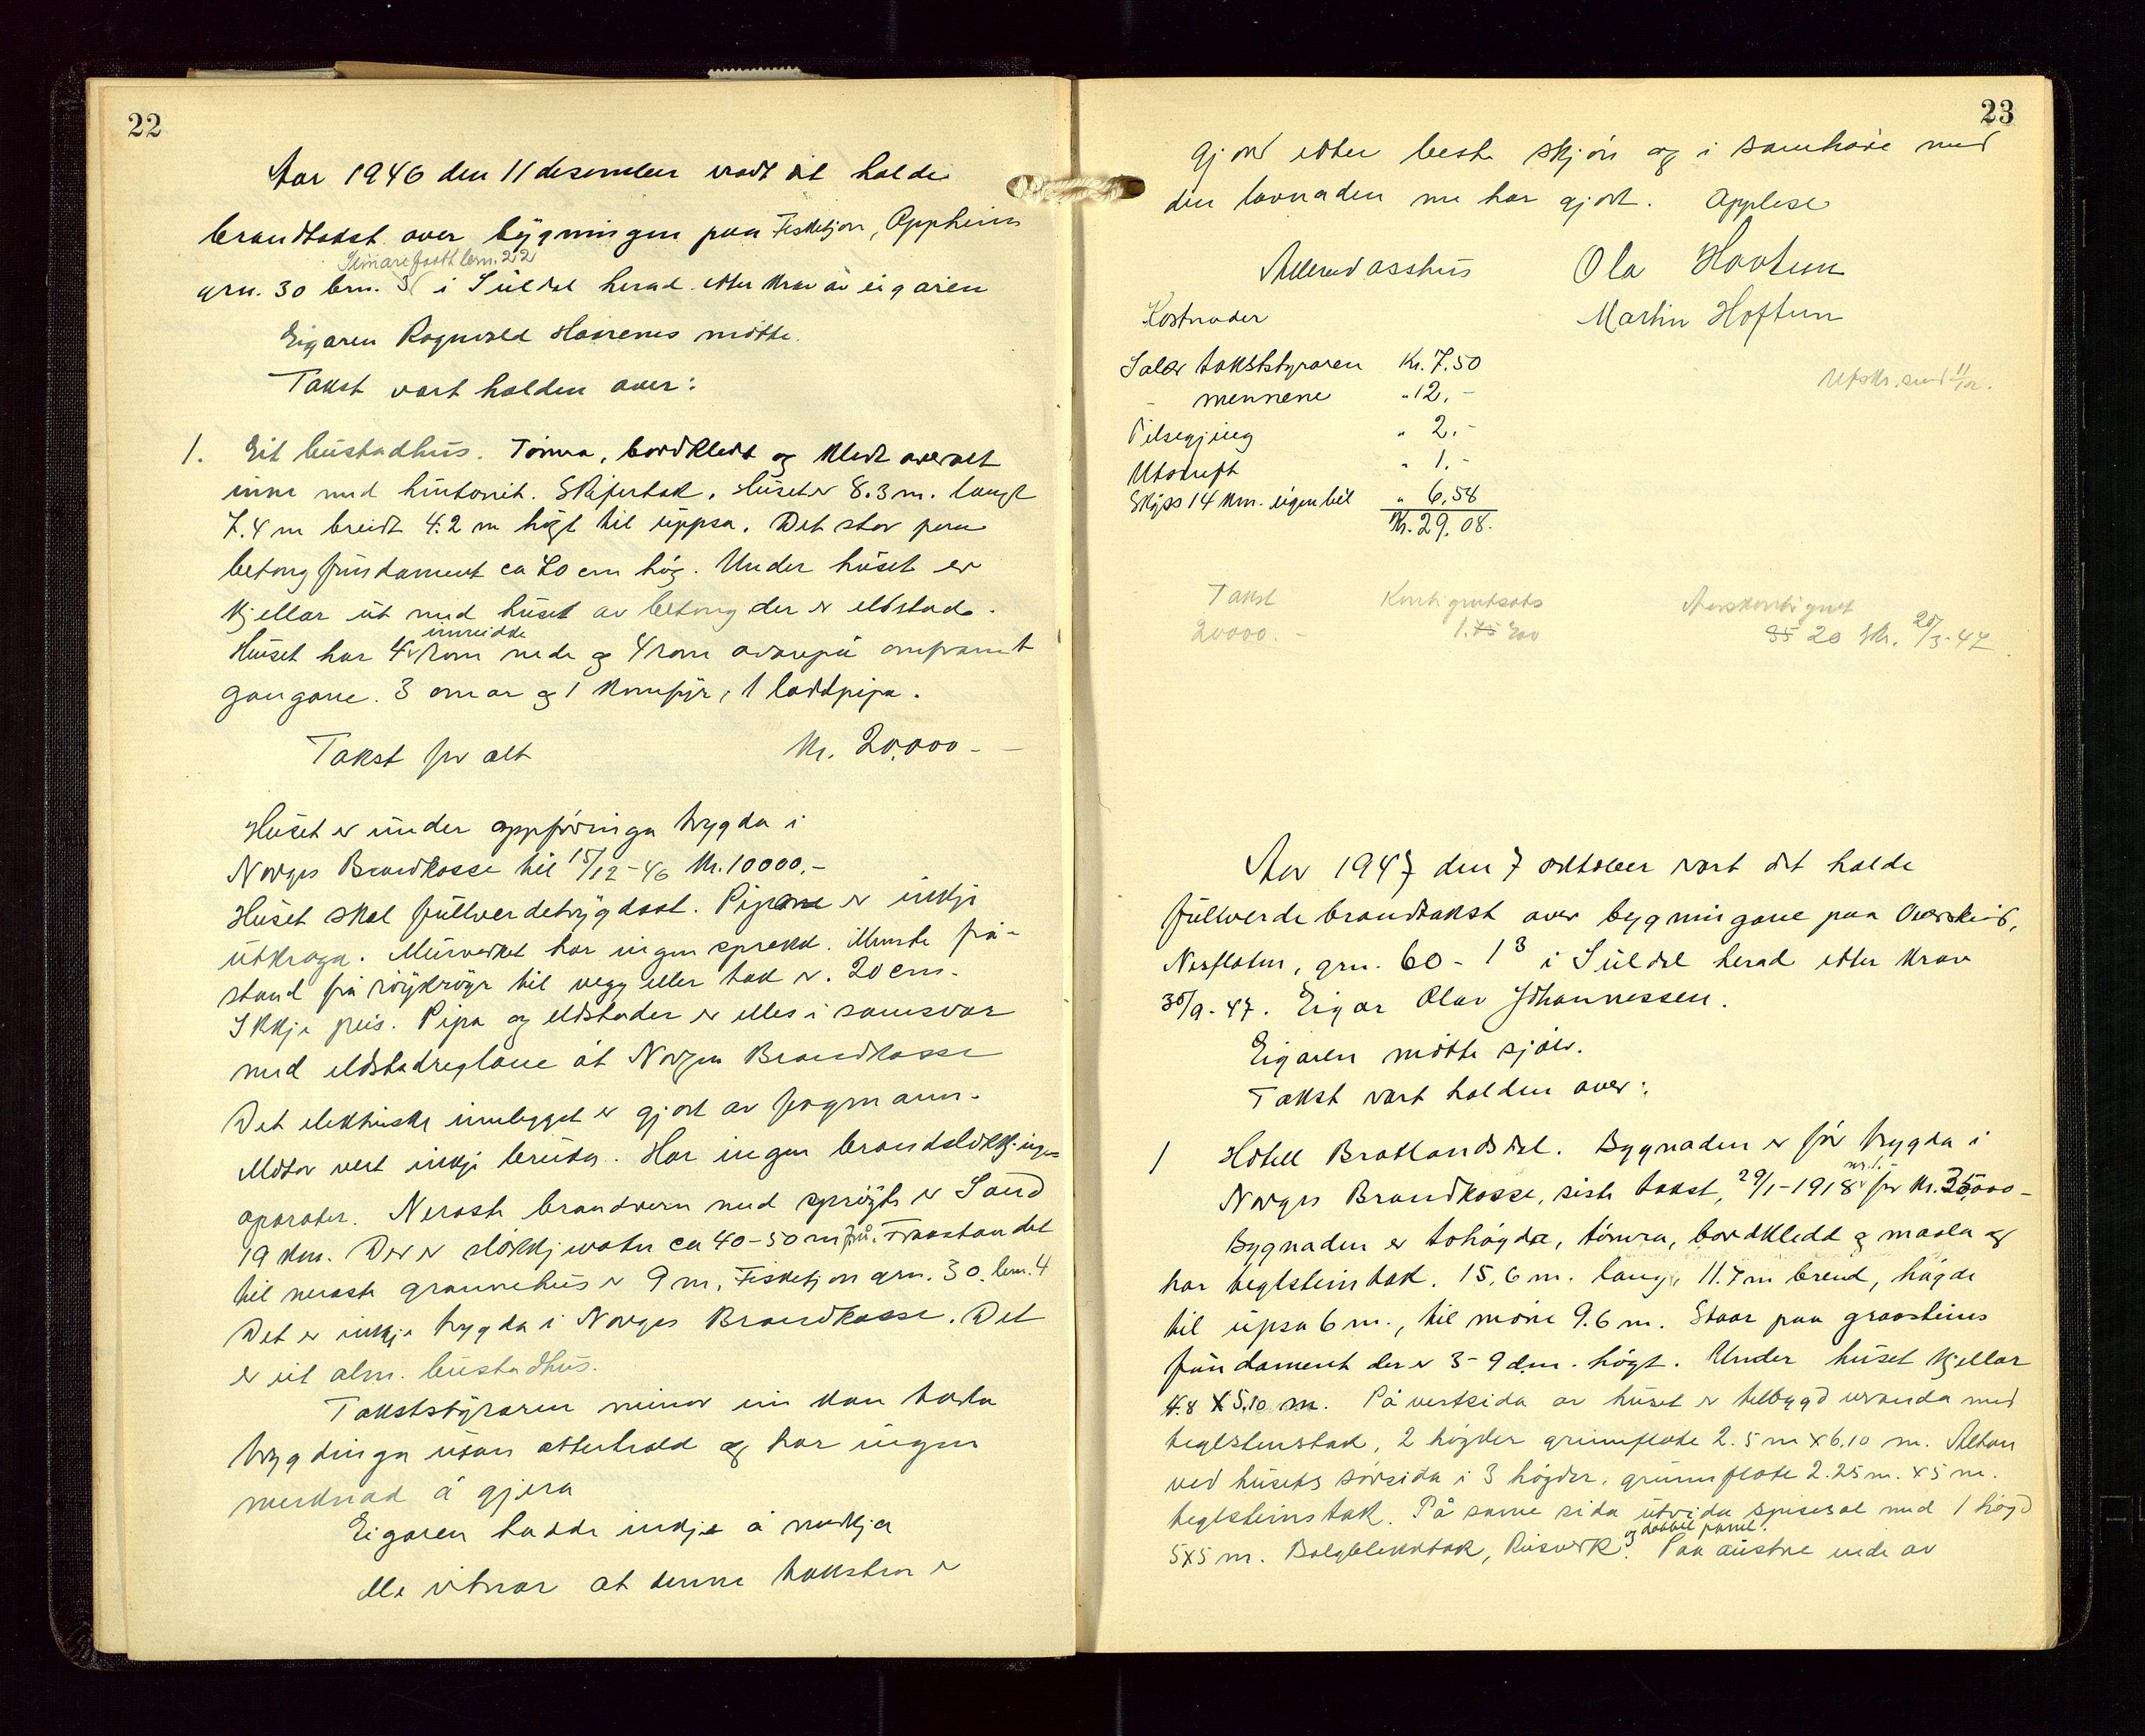 22
Aar 1946 den 11 desember vart det halde
brandtakst over bygningen paa Fisketjon, Oppheim
Seinare faatt brn. 22
grn. 30 brn. 3 i Suldal herad etter krav av eigaren
Eigaren Ragnvald Havrenes møtte.
Takst vart halden over:
1. Eit bustadhus. Tømra, bordkledt og kledt overalt
inne med huntonit. Skifertak. Huset er 8.3 m. langt
7.4 m breidt 4.2 m høgt til uppsa. Det star paa
betong fundament ca 20 cm høg. Under huset er
kjellar ut med huset av betong der er eldstad.
innreidde
Huset har 4 rom nede og 4 rom ovanpå omframt
gangane. 3 omnar og 1 komfyr, 1 laddpipa.
Takst for alt Kr. 20.000 - -
Huset er under oppføringa trygda i
Norges Brandkasse til 15/12-46 Kr. 10000.-
Huset skal fullverdetrygdast. Pipene er inkje
utkraga. Murverket har ingen sprekk. Minste frå-
stand frå røykrøyr til vegg eller tak er. 20 cm.
Ikkje peis. Pipa og eldstader er elles i samsvar
med eldstadreglane åt Norges Brandkasse
Det elektriske innlegget er gjort av fagmann.
Motor vert inkje bruka. Har ingen brandsløkkjings-
aparater. Neraste brandvern med sprøyte er Sand
19 km. Der er sløkkjevatn ca 40-50 m frå. Fraastandet
til neraste grannehus er 9 m, Fisketjon grn. 30. brn. 4
Det er inkje trygda i Norges Brandkasse. Det
er eit alm. bustadhus.
Takststyraren meiner ein kan taka
trygdinga utan atterhald og har ingen
merknad å gjera
Eigaren hadde inkje å merkja
Me vitnar at denne taksten er
23
gjord etter beste skjøn og i samhøve med
den lovnaden me har gjort. Opplese
Ola Hovtun
Martin Hoftun
Kostnader
Salær takststyraren Kr. 7.50
- mennene " 12.-
Tilsegjing " 2.-
Utskrift " 1.-
Skyss 14 km. eigen bil " 6,58
Kr. 29.08.
Utskr. send 11/12.
Takst Kontigentsats Aarskontigent
20000.- 1.75 %oo 35 20 Skr. 20/3-47
Aar 1947 den 7 oktober vart det halde
fullverde brandtakst over bygningane paa Overskeid,
Nesflaten, grn. 60 - 1 3 i Suldal herad etter krav
30/9-47. Eigar Olav Johannessen.
Eigaren møtte sjølv.
Takst vart halden over:
1 Hotell Bratlandsdal. Bygnaden er før trygda i
nr. 1.
Norges Brandkasse, siste takst, 29/1-1918 for Kr. 35000-
Bygnaden er tohøgda, tømra, bordkledd og maala og
har teglsteinstak. 15.6 m. lang, 11.7 m breid, høgde
til upsa 6 m., til møne 9.6 m. Staar paa graasteins
fundament der er 3-9 dm. høgt. Under huset kjellar
4.8 X 5.10 m. På vestsida av huset er tilbygd veranda med
teglsteinstak, 2 høgder grunnflate 2.5 m X 6.10 m. Altan
ved husets sørsida i 3 høgder, grunnflate 2.25 m. X 5 m.
teglsteinstak. På same sida utvida spisesal med 1 høgd
og dobbel panel.
5X5 m. Bølgeblekktak, Reisverk. Paa austre ende av